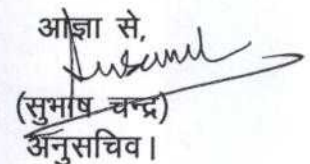 आज्ञा से,
(सुभाष चन्द्र)
अनुसचिव।